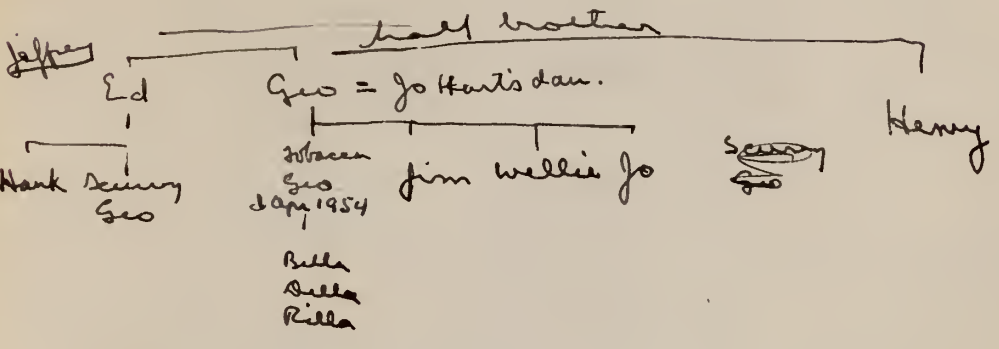 half brother
Jeffrey
Ed
Geo = Jo Hart's dau.
Henry
Hank Scurvy Geo
Tobacco Geo
d Apr 1954
Jim Willie Jo
Scurvy
Geo
Bella
Della
Rilla